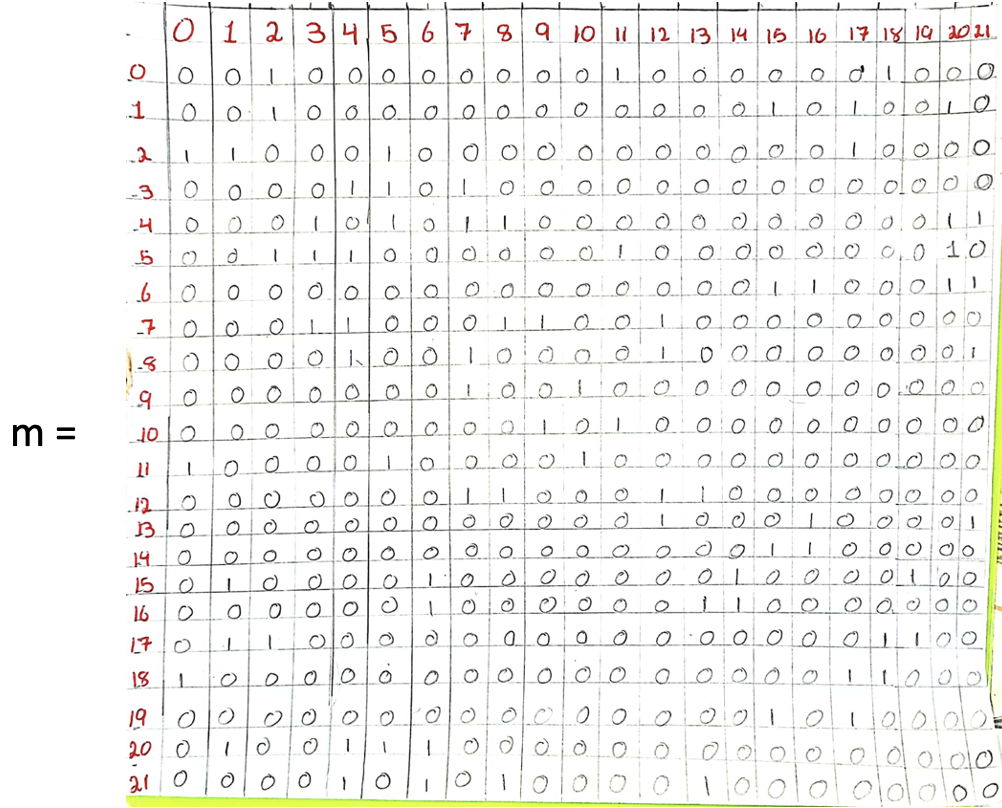 0 1 2 3 4 5 6 7 8 9 10 11 12 13 14 15 16 17 18 19 20 21
0 0 0 1 0 0 0 0 0 0 0 0 1 0 0 0 0 0 0 1 0 0 0
1 0 0 1 0 0 0 0 0 0 0 0 0 0 0 0 1 0 1 0 0 1 0
2 1 1 0 0 0 1 0 0 0 0 0 0 0 0 0 0 0 1 0 0 0 0
3 0 0 0 0 1 1 0 1 0 0 0 0 0 0 0 0 0 0 0 0 0 0
4 0 0 0 1 0 1 0 1 1 0 0 0 0 0 0 0 0 0 0 0 1 1
5 0 0 1 1 1 0 0 0 0 0 0 1 0 0 0 0 0 0 0 0 1 0
6 0 0 0 0 0 0 0 0 0 0 0 0 0 0 0 1 1 0 0 0 1 1
7 0 0 0 1 1 0 0 0 1 1 0 0 1 0 0 0 0 0 0 0 0 0
8 0 0 0 0 1 0 0 1 0 0 0 0 1 0 0 0 0 0 0 0 0 1
9 0 0 0 0 0 0 0 1 0 0 1 0 0 0 0 0 0 0 0 0 0 0
m =
10 0 0 0 0 0 0 0 0 0 1 0 1 0 0 0 0 0 0 0 0 0 0
11 1 0 0 0 0 1 0 0 0 0 1 0 0 0 0 0 0 0 0 0 0 0
12 0 0 0 0 0 0 0 1 1 0 0 0 1 1 0 0 0 0 0 0 0 0
13 0 0 0 0 0 0 0 0 0 0 0 0 1 0 0 0 1 0 0 0 0 1
14 0 0 0 0 0 0 0 0 0 0 0 0 0 0 0 1 1 0 0 0 0 0
15 0 1 0 0 0 0 1 0 0 0 0 0 0 0 1 0 0 0 0 1 0 0
16 0 0 0 0 0 0 1 0 0 0 0 0 0 1 1 0 0 0 0 0 0 0
17 0 1 1 0 0 0 0 0 0 0 0 0 0 0 0 0 0 0 1 1 0 0
18 1 0 0 0 0 0 0 0 0 0 0 0 0 0 0 0 0 1 1 0 0 0
19 0 0 0 0 0 0 0 0 0 0 0 0 0 0 0 1 0 1 0 0 0 0
20 0 1 0 0 1 1 1 0 0 0 0 0 0 0 0 0 0 0 0 0 0 0
21 0 0 0 0 1 0 1 0 1 0 0 0 0 1 0 0 0 0 0 0 0 0